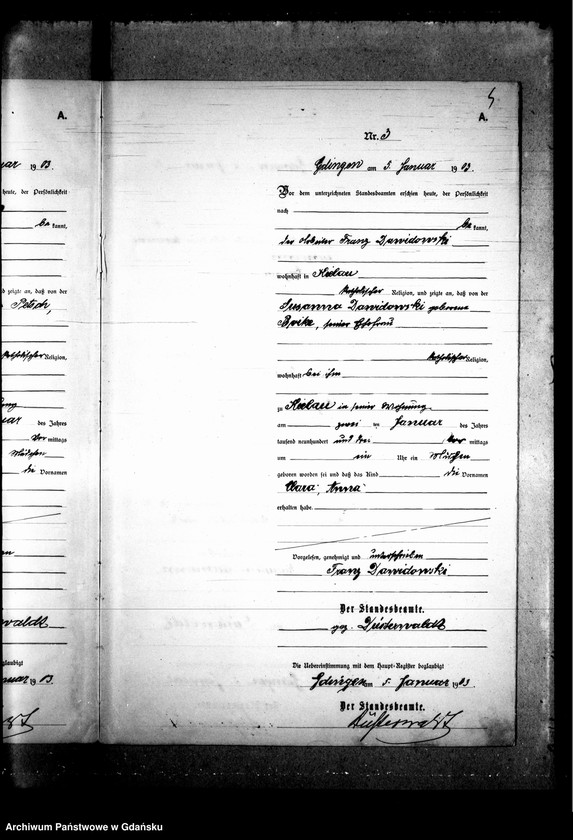 A.
uar 1903.
heute, der Persönlichkeit
be kannt,
d zeigte an, daß von der
Petsch,
katholischer Religion,
uar des Jahres
Vor mittags
Mädchen
die Vornamen
waldt
glaubigt
nuar 1903.
5
A.
Nr. 3
Gdingen am 5. Januar 1903.
Vor dem unterzeichneten Standesbeamten erschien heute, der Persönlichkeit
nach
be kannt,
der Arbeiter Franz Dawidowski
wohnhaft in Kielau
katholischer Religion, und zeigte an, daß von der
Susanna Dawidowski geborene
seiner Ehefrau
katholischer Religion,
wohnhaft bei ihm
zu Kielau in seiner Wohnung
am zwei ten Januar des Jahres
tausend neunhundert und drei, Vor mittags
um ein Uhr ein Mädchen
geboren worden sei und daß das Kind die Vornamen
Clara, Anna
erhalten habe.
Vorgelesen, genehmigt und unterschrieben
Franz Dawidowski
Der Standesbeamte.
gez. Düsterwaldt
Die Uebereinstimmung mit dem Haupt-Register beglaubigt
Gdingen am 5. Januar 1903.
Der Standesbeamte.
Düsterwaldt
Archiwum Państwowe w Gdańsku